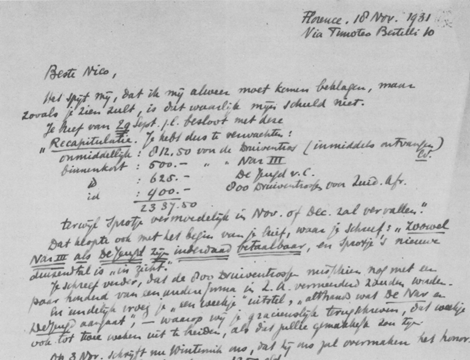 Florence, 18 Nov. 1931
Via Timoteo Bertelli 10
Beste Nico,
Het spijt mij, dat ik mij alweer moet komen beklagen, maar
zooals je zien zult, is dit waarlijk mijn schuld niet.
Je brief van 29 Sept. j.l. besloot met deze
"Recapitulatie. Je hebt dus te verwachten:
onmiddellijk : 812.50 von de Druiventros (inmiddels ontvangen)
binnenkort : 500.— " " Nar III
D : 625.— De Jeugd v. C.
id : 400.— 800 Druiventrossen voor Zuid. Afr.
2337.50
terwijl Spotje vermoedelijk in Nov. of Dec. zal vervallen."
Dat klopte ook met het begin van je brief, waar je schreef: "Zoowel
Nar III als De Jeugd zijn inderdaad betaalbaar, en Spotje's nieuwe
duizendtal is "in zicht."
Je schreef verder, dat de 800 Druiventrossen misschien nog met een
paar honderd van een andere firma in Z.A. vermeerderd zouden worden.
En eindelijk vroeg je "een weekje" uitstel, "althans wat De Nar en
De Jeugd aangaat", — waarop wij je gracieuslijk terugschreven, dit weekje
ook tot twee weken uit te breiden, als dit jullie gemakkelijk zou zijn.
Op 3 Nov. schrijft nu ons, dat hij ons zal overmaken het honor